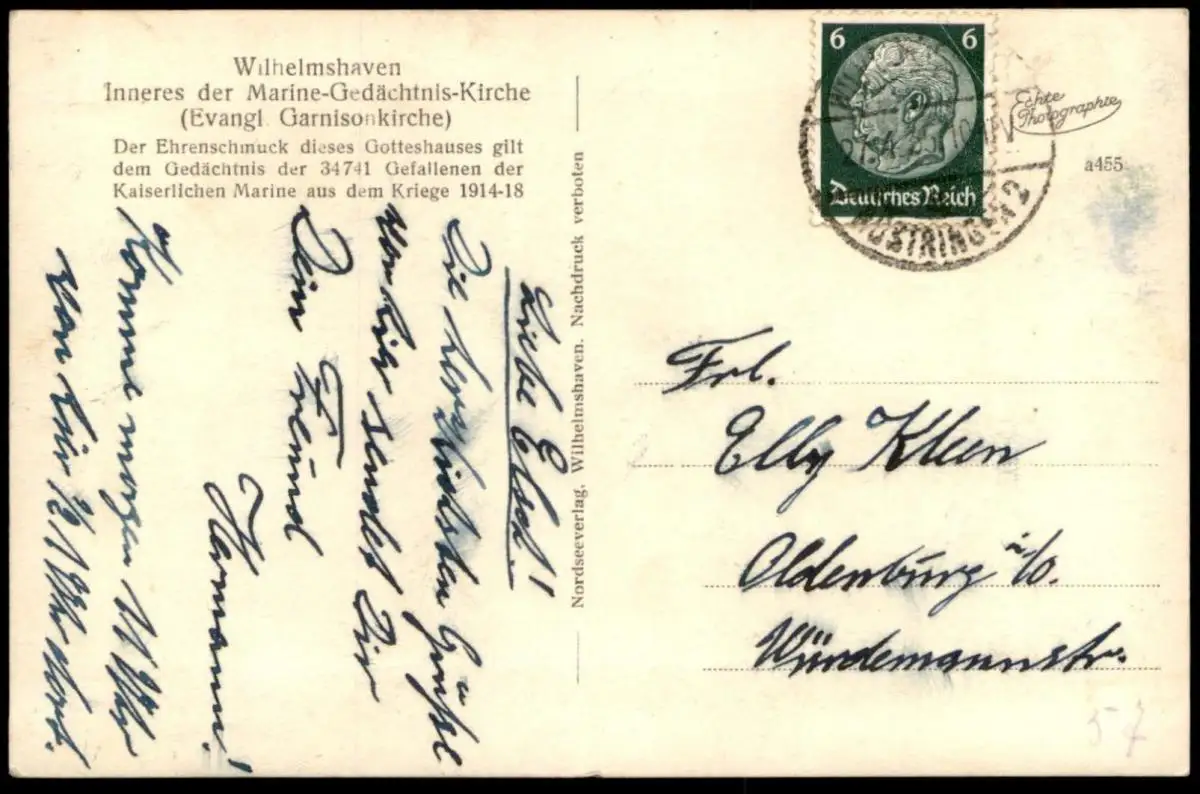 Wilhelmshaven
Inneres der Marine-Gedächtnis-Kirche
(Evangl. Garnisonkirche)
Der Ehrenschmuck dieses Gotteshauses gilt
dem Gedächtnis der 34741 Gefallenen der
Kaiserlichen Marine aus dem Kriege 1914-18
Nordseeverlag, Wilhelmshaven. Nachdruck verboten
Liebe
Die herzlichsten Grüße
sendet Dir
Dein Freund
Hermann!
Komme morgen 11 Uhr
6 6
Deutsches Reich
RÜSTRINGEN 2
Echte
Photographie
a455
Frl.
Elly Kleen
Oldenburg i/o.
Würdemannstr.
57